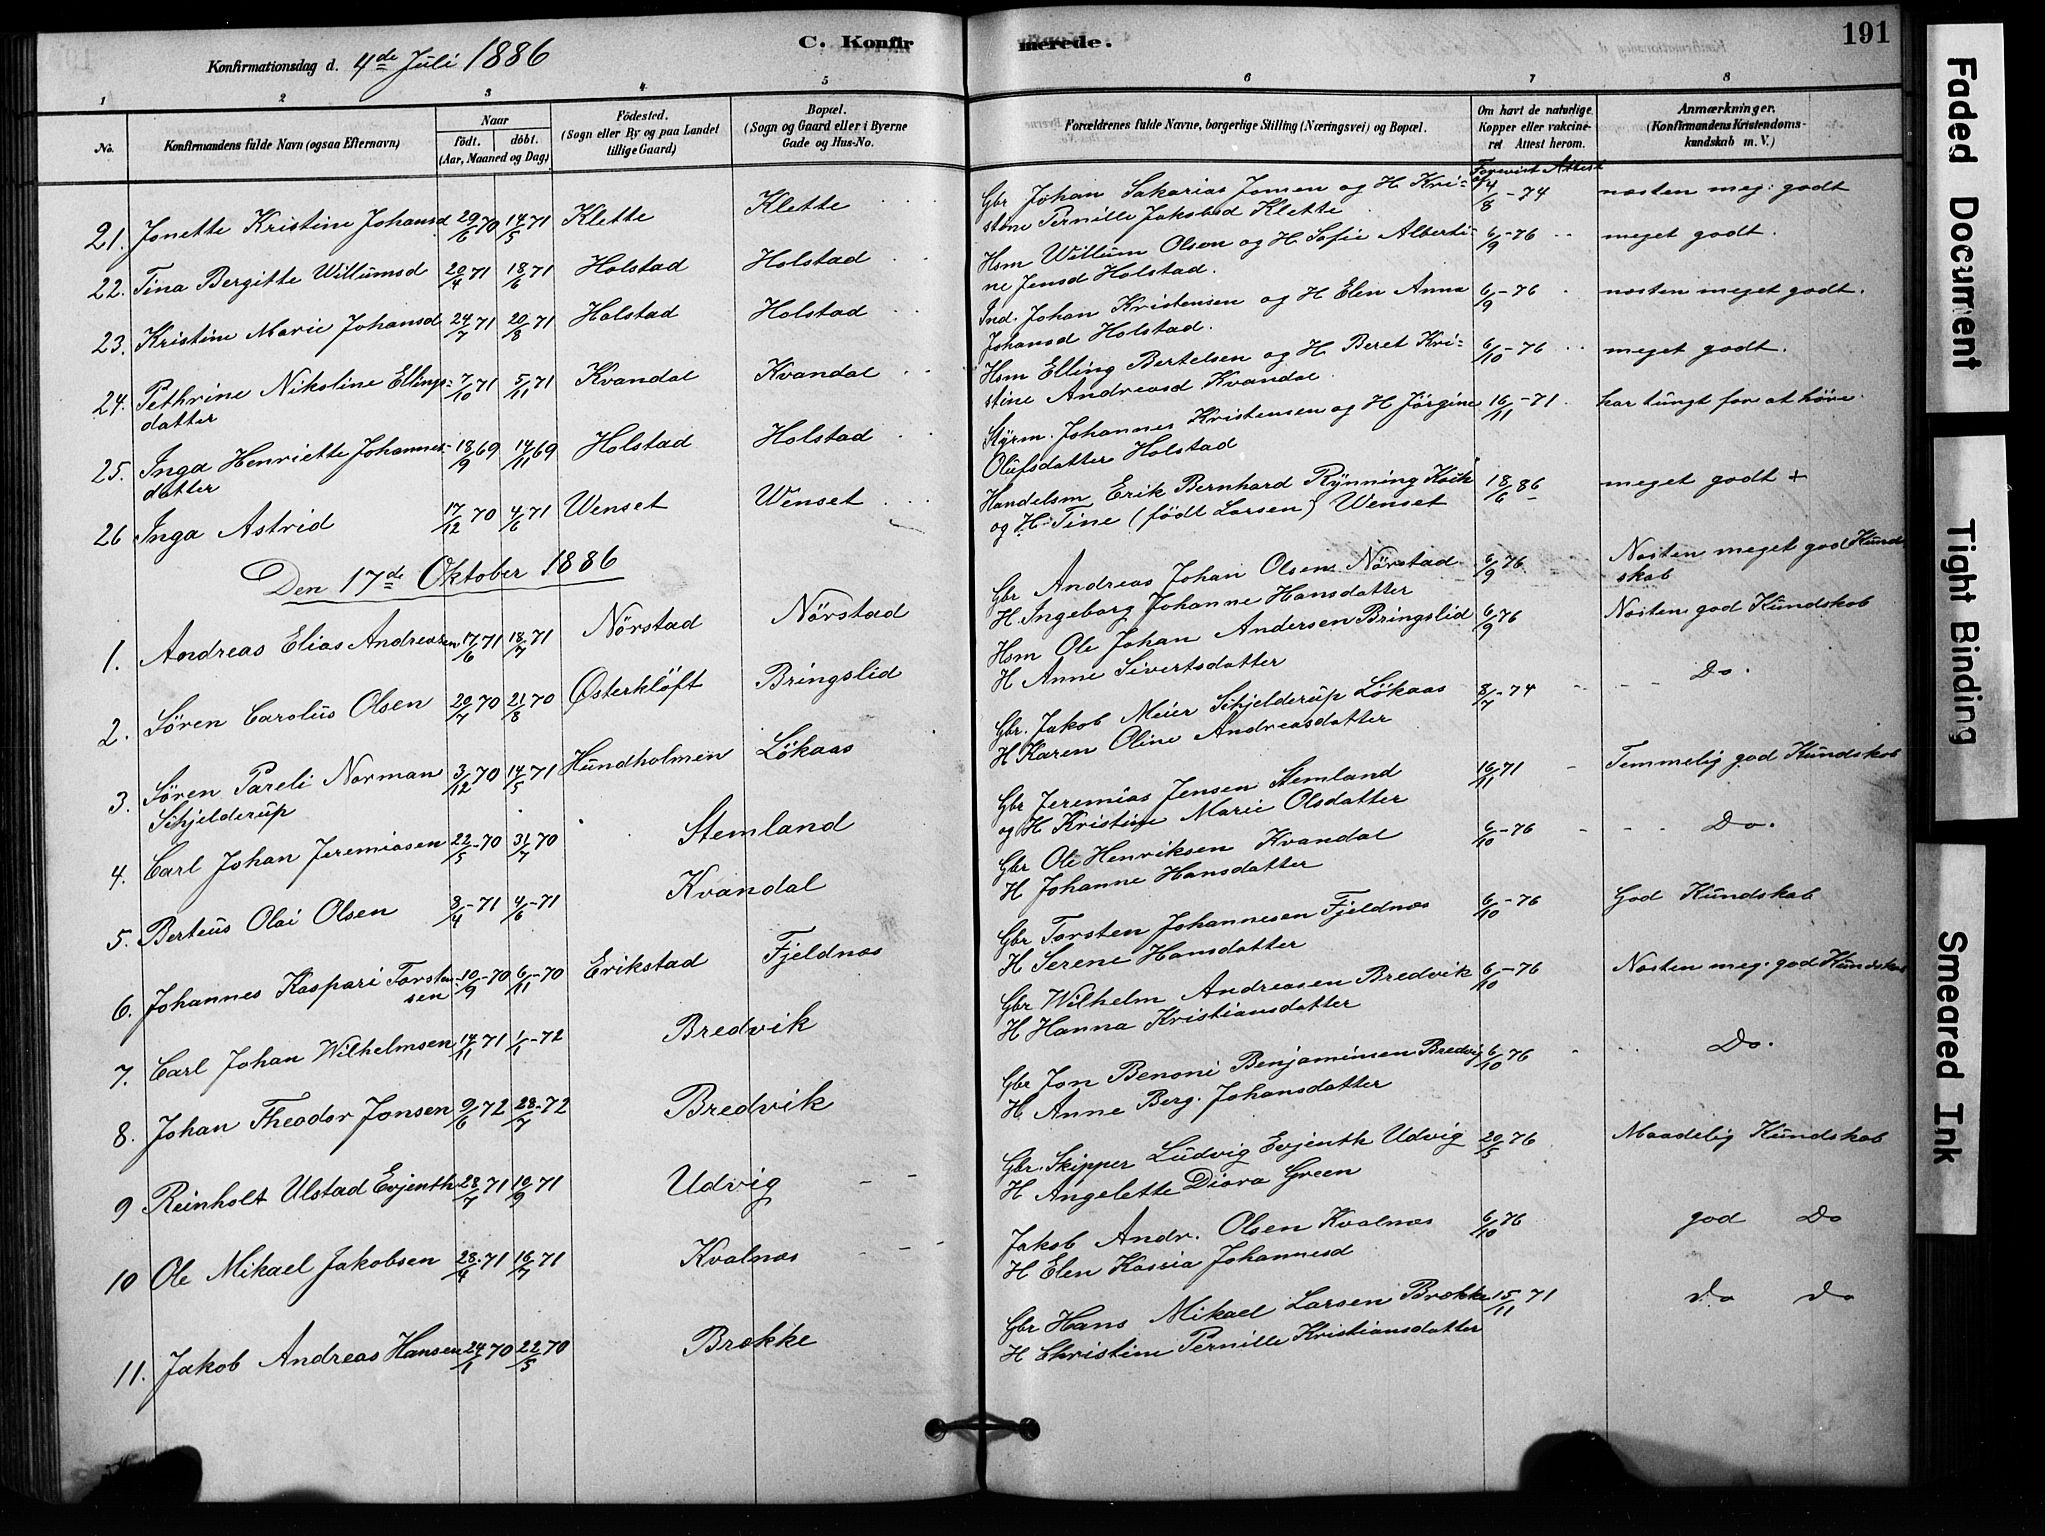 C. Konfirmerede.
191
Konfirmationsdag d. 4de Juli 1886
1 2 3 4 5 6 7 8
No.
Konfirmandens fulde Navn (ogsaa Efternavn)
Naar
födt. döbt.
(Aar, Maaned og Dag)
Födested.
(Sogn eller By og paa Landet
tillige Gaard)
Bopæl.
(Sogn og Gaard eller i Byerne
Gade og Hus-No.
Forældrenes fulde Navne, borgerlige Stilling (Næringsvei) og Bopæl.
Om havt de naturlige
Kopper eller vakcine-
ret Attest herom.
Anmærkninger.
(Konfirmandens Kristendoms-
kundskab m. V.)
Forevist Attest
21. Jonette Kristine Johansd 29/6 70 14/5 71 Klette Klette Gbr Johan Sakarias Jonsen og H Kri-
stine Pernille Jakobsd Klette 4/8 - 74 næsten meg: godt
22. Tina Bergitte Willumsd 20/4 71 18/6 71 Holstad Holstad Hsm Willum Olsen og H Sofie Alberti-
ne Jensd Holstad. 6/9 - 76 meget godt.
23. Kristine Marie Johansd 24/7 71 20/8 71 Holstad Holstad Ind. Johan Kristensen og H Elen Anna
Johansd Holstad. 6/9 - 76 næsten meget godt.
24. Pethrine Nikoline Ellings-
datter 7/10 71 5/11 71 Kvandal Kvandal Hsm Elling Bertelsen og H Beret Kri-
stine Andreasd Kvandal 6/10 - 76 meget godt.
25. Inga Henriette Johannes-
datter 18/9 69 14/11 69 Holstad Holstad Styrm. Johannes Kristensen og H Jörgine
Olufsdatter Holstad 16/11 - 71 har tungt for at höre.
26 Inga Astrid 17/12 70 4/6 71 Wenset Wenset Handelsm Erik Bernhard Rynning Koch
og H. Tine (födt Larsen) Wenset 18/6 86 meget godt +
Den 17de Oktober 1886
1. Andreas Elias Andreasen 17/6 71 18/7 71 Nörstad Nörstad Gbr Andreas Johan Olsen Nörstad
H Ingeborg Johanne Hansdatter 6/9 76 Næsten meget god Kund-
skab
2. Sören Carolus Olsen 20/7 70 21/8 70 Østerklöft Bringslid Hsm Ole Johan Andersen Bringslid
H Anne Sivertsdatter 6/9 76 Næsten god Kundskab
3. Sören Pareli Norman
Schjelderup 3/12 70 14/5 71 Hundholmen Lökaas Gbr. Jakob Meier Schjelderup Lökaas
H Karen Oline Andreasdatter 8/7 - 74 Do.
4. Carl Johan Jeremiasen 22/5 - 70 31/7 70 Stemland Gbr Jeremias Jensen Stemland
og H Kristine Marie Olsdatter 16/11 71 Temmelig god Kundskab
5. Berteus Olai Olsen 3/4 - 71 4/6 - 71 Kvandal Gbr Ole Henriksen Kvandal
H Johanne Hansdatter 6/10 - 76 Do.
6. Johannes Kaspari Torsten-
sen 10/9 - 70 6/11 - 70 Erikstad Fjeldnæs Gbr Torsten Johannesen Fjeldnæs
H Serene Hansdatter 6/10 - 76 God Kundskab
7. Carl Johan Wilhelmsen 14/11 71 1/1 - 72 Bredvik Gbr Wilhelm Andreasen Bredvik
H Hanna Kristiansdatter 6/10 - 76 Næsten meg. god Kundskab
8. Johan Theodor Jonsen 9/6 72 28/7 - 72 Bredvik Gbr Jon Benoni Benjaminsen Bredvig
H Anne Berg. Johansdatter 6/10 76 Do.
9 Reinholt Ulstad Evjenth 28/7 71 10/9 71 Udvig Gbr. Skipper Ludvig Evjenth Udvig
H Angelette Diora Green 20/5 76 Maadelig Kundskab
10 Ole Mikael Jakobsen 28/4 71 16/7 71 Kvalnæs Jakob Andr. Olsen Kvalnæs
H Elen Kasia Johannesd 6/10 76 god Do
11. Jakob Andreas Hansen 24/1 70 22/5 70 Brække Gbr Hans Mikael Larsen Brække
H Christine Pernille Kristiansdatter 15/11 71 do Do
Faded Document
Tight Binding
Smeared Ink